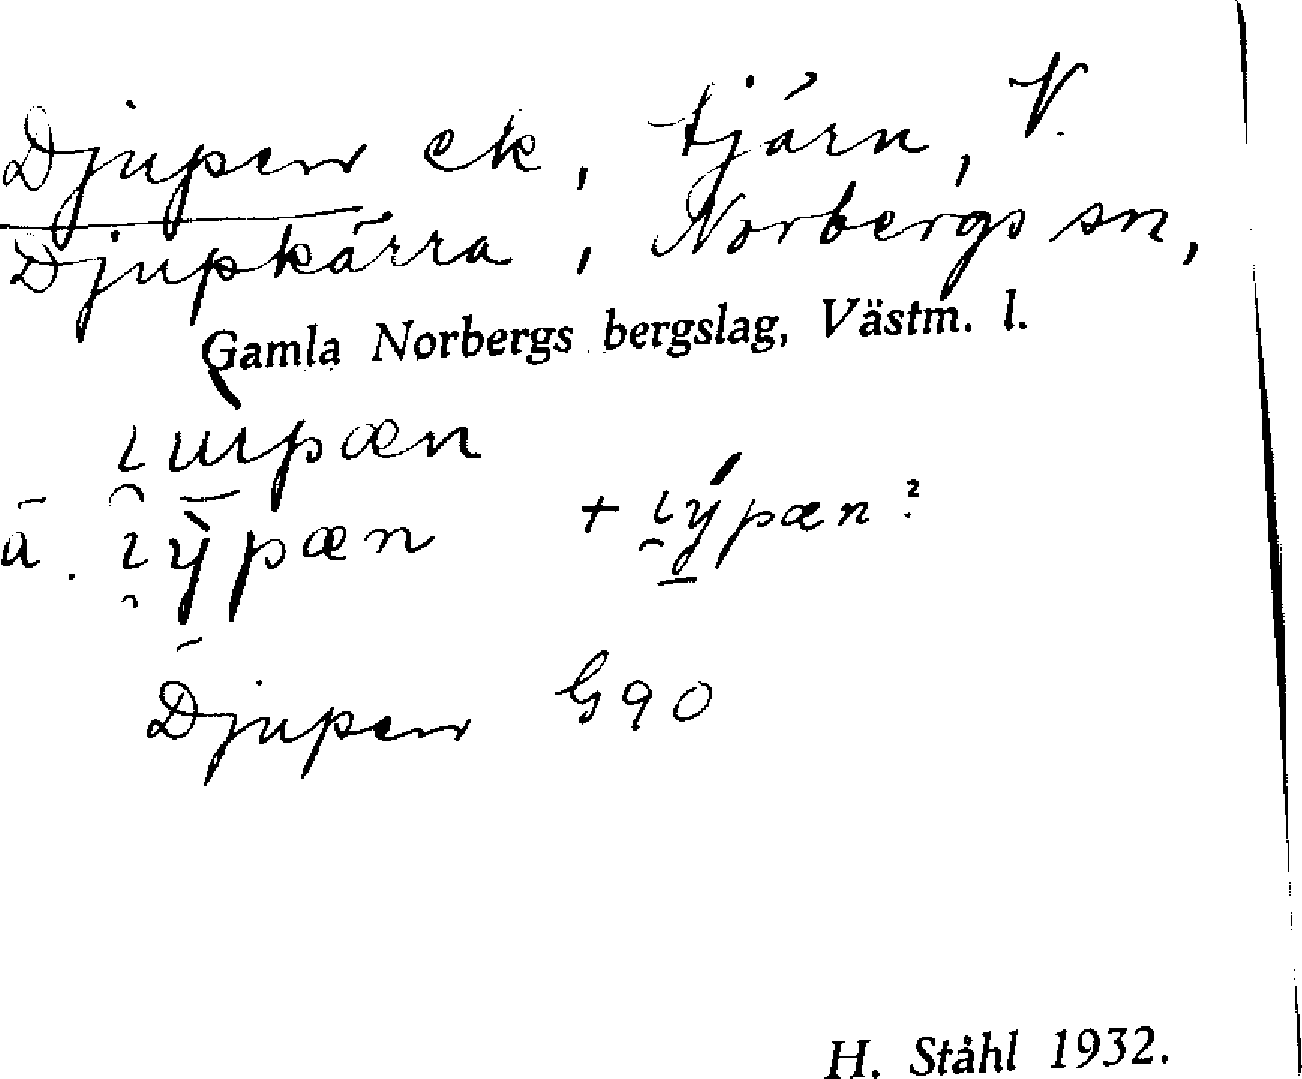 Djupen ek, tjärn, V.
Djupkärra, Norbergs sn,
Gamla Norbergs bergslag, Västm. l.
ɩ̯ɯ̀pæn
ä. ɩ̯ỳpæn + ɩ̯ýpæn?
Djupen G90
H. Ståhl 1932.